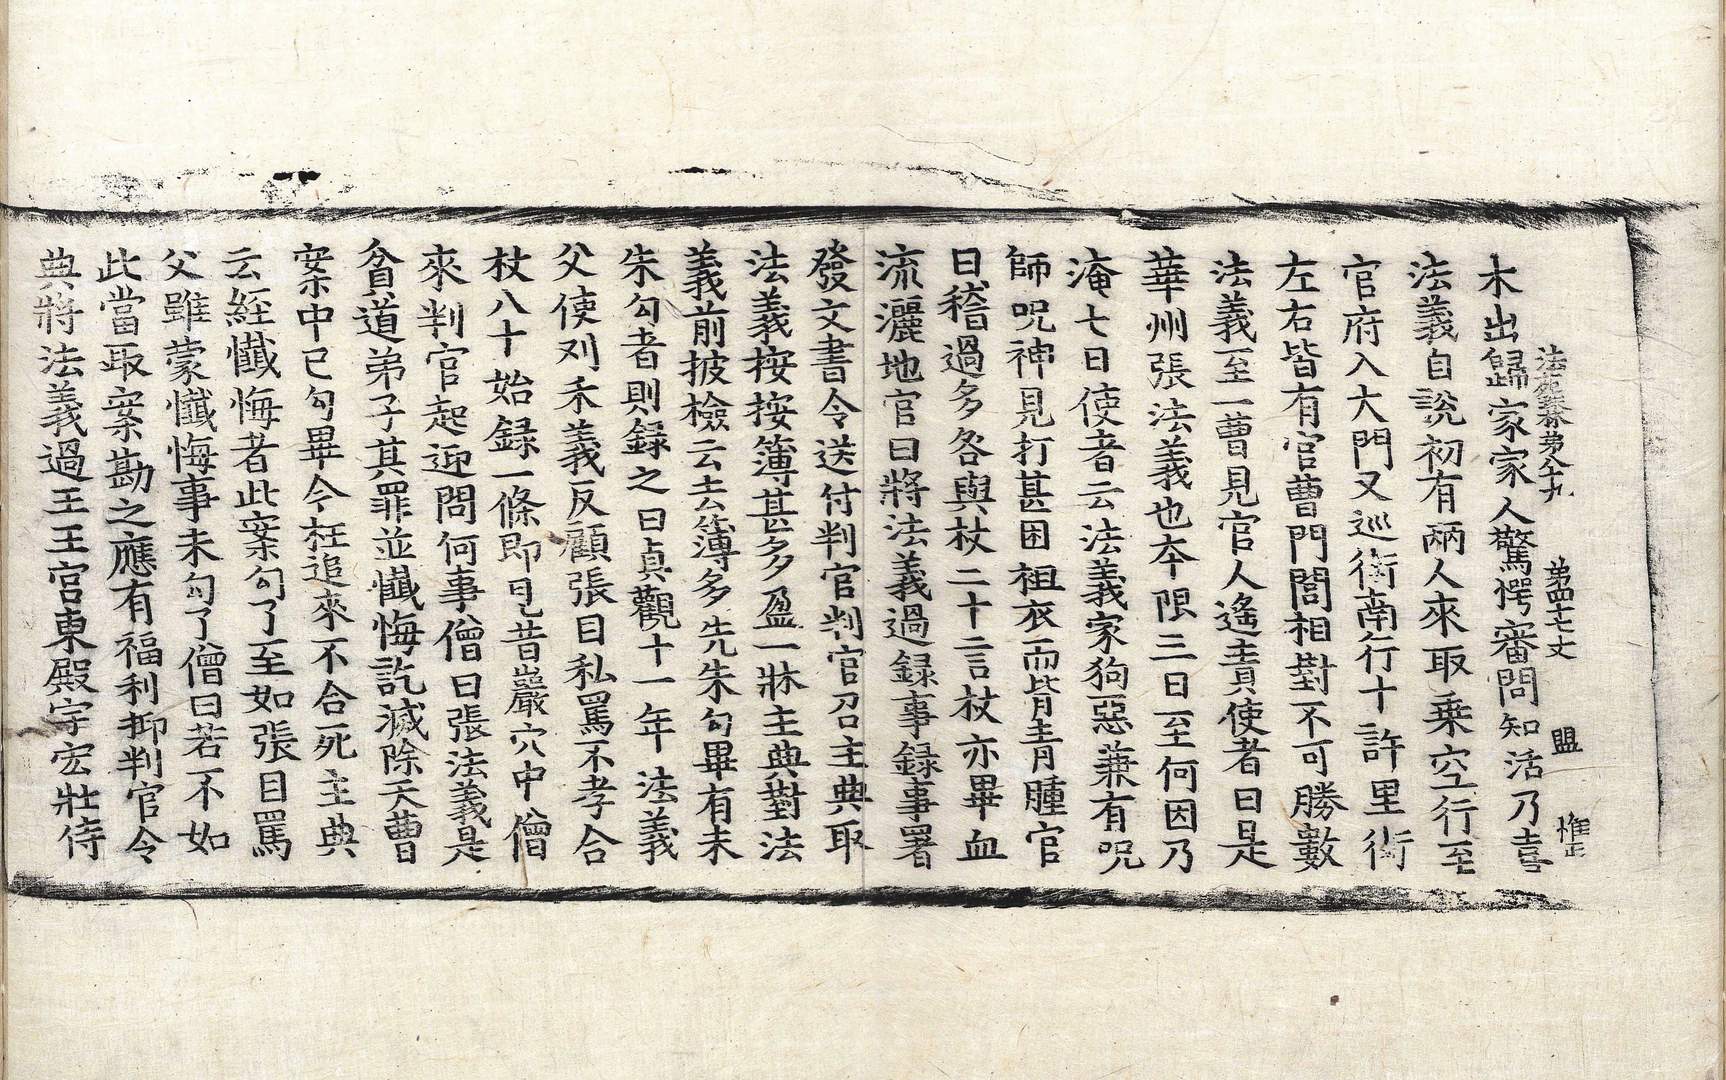 法苑珠林第八十九 第四十七丈 盟 惟正
木出歸家家人驚愕審問知活乃喜
法義自說初有兩人來取乗空行至
官府入大門又巡街南行十許里街
左右皆有官曹門閭相對不可勝數
法義至一曹見官人遙責使者曰是
華州張法義也本限三日至何因乃
淹七日使者云法義家狗惡兼有呪
師呪神見打甚困袒衣而背青腫官
曰稽過多各與杖二十言杖亦畢血
流灑地官曰將法義過録事録事署
發文書令送付判官判官召主典取
法義按按簿甚多盈一牀主典對法
義前披檢云去簿多先朱勾畢有未
朱勾者則録之曰貞觀十一年法義
父使刈禾義反顧張目私罵不孝合
杖八十始録一條即見昔巖穴中僧
來判官起迎問何事僧曰張法義是
貧道弟子其罪並懺悔訖滅除天曹
案中已勾畢今枉追來不合死主典
云經懺悔者此案勾了至如張目罵
父雖蒙懺悔事未勾了僧曰若不如
此當取案勘之應有福利抑判官令
典將法義過王王宮東殿宇宏壯侍